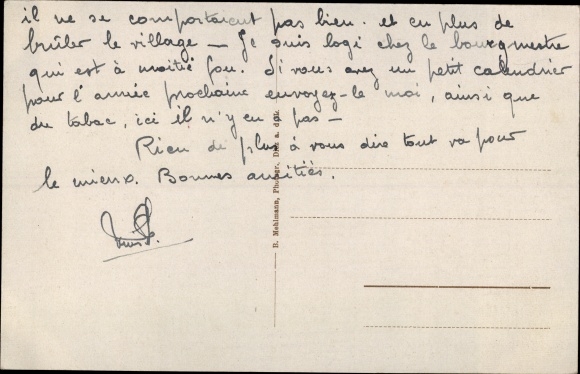 il ne se comportaient pas bien. et en plus de
brûler le village — Je suis logé chez le bourgmestre
qui est à moitié fou. Si vous avez un petit calendrier
pour l'année prochaine envoyez-le moi, ainsi que
du tabac, ici il n'y en a pas —
Rien de plus à vous dire tout va pour
le mieux. Bonnes amitiés.
B. Mehlmann, Photogr.